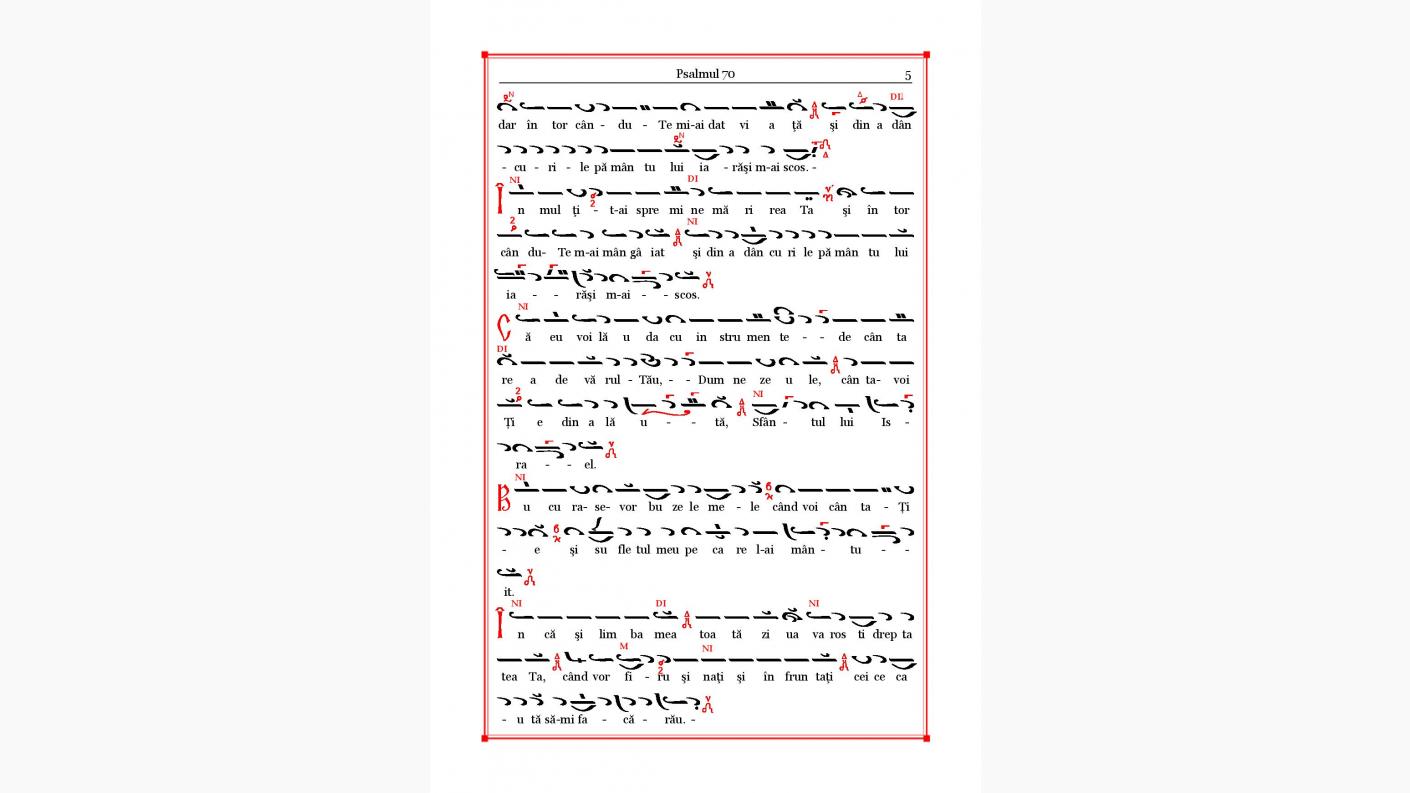 Psalmul 70 5
dar în tor cân - du - Te mi-ai dat vi a ţă şi din a dân
- cu - ri - le pă mân tu lui ia - răşi m-ai scos. -
În mul ţi - t-ai spre mi ne mă ri rea Ta şi în tor
cân du- Te m-ai mân gâ iat şi din a dân cu ri le pă mân tu lui
ia - - răşi m-ai - - scos.
Că eu voi lă u da cu in stru men te - - de cân ta
re a de vă rul - Tău, - - Dum ne ze u le, cân ta- voi
Ţi e din a lă u - - tă, Sfân - tul lui Is -
ra - - el.
Bu cu ra- se- vor bu ze le me - le când voi cân ta - Ţi
- e şi su fle tul meu pe ca re l-ai mân - tu - -
it.
În că şi lim ba mea toa tă zi ua va ros ti drep ta
tea Ta, când vor fi - ru şi naţi şi în frun taţi cei ce ca
- u tă să-mi fa - că - rău. -